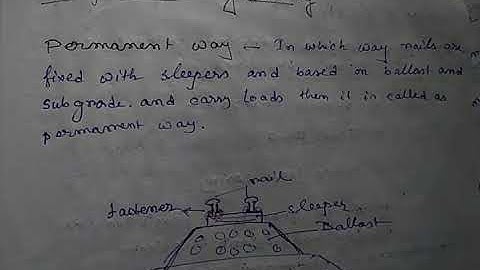 Permanent way - In which way nails are
fixed with sleepers and based on ballast and
subgrade. and carry loads then it in called as
permanent way.
nail
fastener
sleeper
Ballast